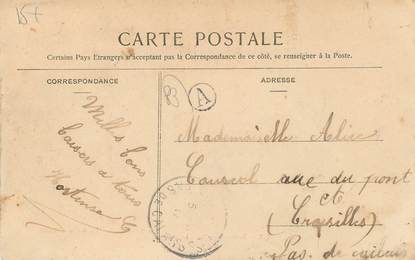 15+
CARTE POSTALE
Certains Pays Etrangers n'acceptant pas la Correspondance de ce côté, se renseigner à la Poste.
CORRESPONDANCE
ADRESSE
B
A
Mille bons
baisers a tous
Hortense
Mademoiselle Alice
rue du pont
Croisilles
Pas. de calais